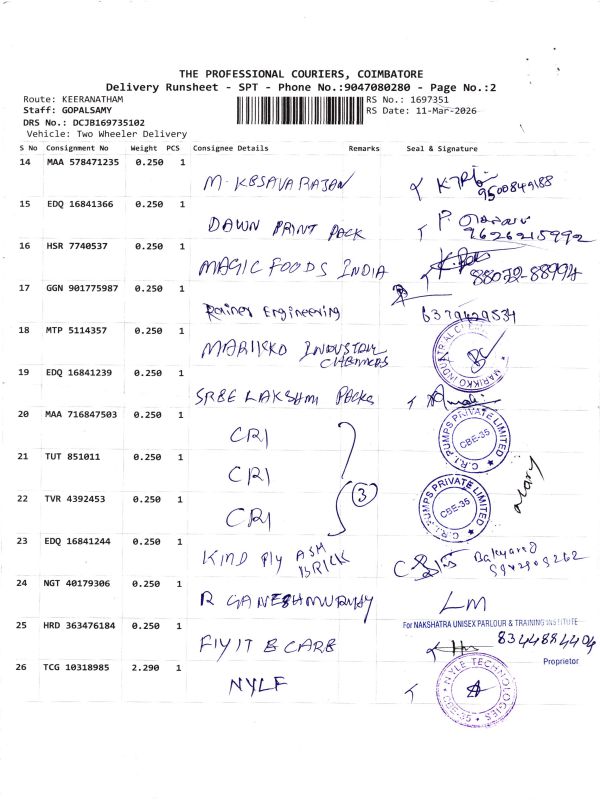 THE PROFESSIONAL COURIERS, COIMBATORE
Delivery Runsheet - SPT - Phone No.:9047080280 - Page No.:2
Route: KEERANATHAM
RS No.: 1697351
Staff: GOPALSAMY
RS Date: 11-Mar-2026
DRS No.: DCJB169735102
Vehicle: Two Wheeler Delivery
S No Consignment No Weight PCS Consignee Details Remarks Seal & Signature
14 MAA 578471235 0.250 1
M. KESAVARAJAN
9500849188
15 EDQ 16841366 0.250 1
DAWN PRINT PACK
9626215992
16 HSR 7740537 0.250 1
MAGIC FOODS INDIA
88072-88994
17 GGN 901775987 0.250 1
Rainer Engineering
6379429534
18 MTP 5114357 0.250 1
MARIKKO INDUSTRIAL
CHEMICALS
MARIKKO INDUSTRIAL
19 EDQ 16841239 0.250 1
SREE LAKSHMI PACKS
20 MAA 716847503 0.250 1
CRI
C.R.I. PUMPS PRIVATE LIMITED
CBE-35
21 TUT 851011 0.250 1
CRI
22 TVR 4392453 0.250 1
3
CRI
C.R.I. PUMPS PRIVATE LIMITED
CBE-35
23 EDQ 16841244 0.250 1
KMD Fly ASH
BRICK
24 NGT 40179306 0.250 1
R GANESHMURTHY
LM
25 HRD 363476184 0.250 1
FIY IT & CARE
For NAKSHATRA UNISEX PARLOUR & TRAINING INSTITUTE
8344884404
Proprietor
26 TCG 10318985 2.290 1
NYLE
NYLE TECHNOLOGIES
CBE-35